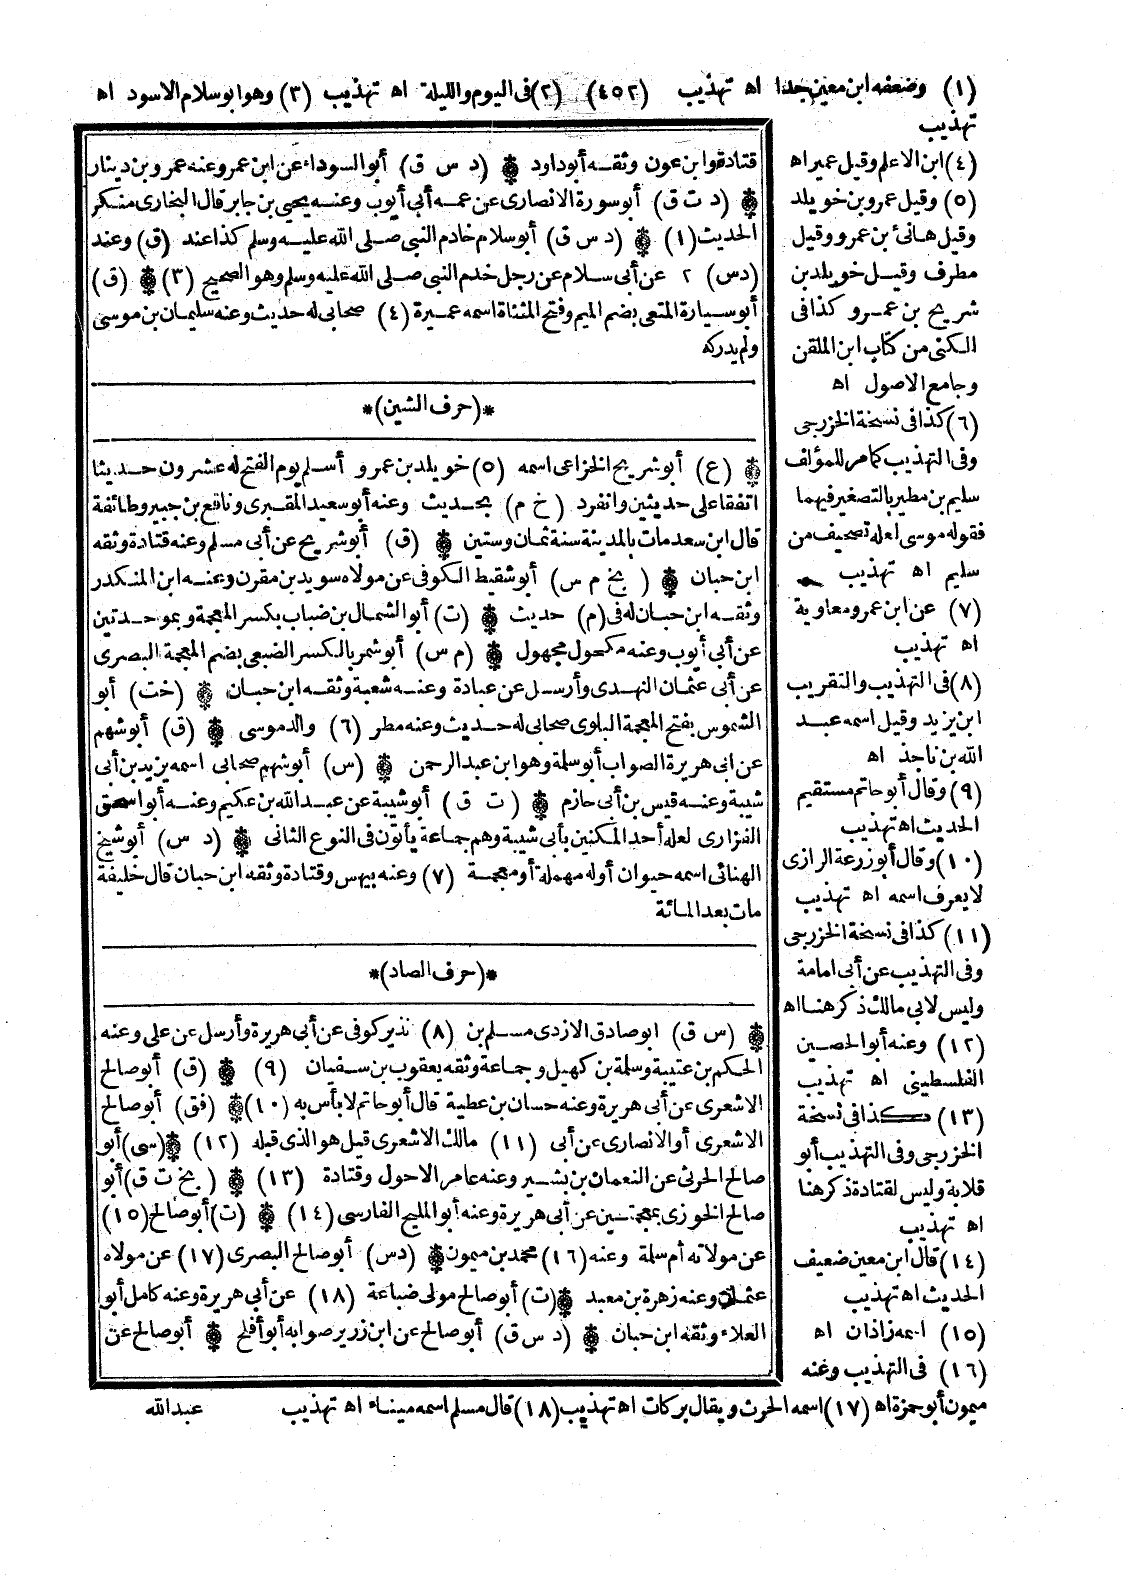 (١) وضعفه ابن معين جدا اه تهذيب (٤٥٢) (٢) في اليوم والليلة اه تهذيب (٣) وهو ابو سلام الاسود اه
تهذيب
(٤) ابن الاعلم وقيل عمير اه
(٥) وقيل عمرو بن خويلد
وقيل هانئ بن عمرو وقيل
مطرف وقيل خويلد بن
شريح بن عمرو كذا في
الكنى من كتاب ابن الملقن
وجامع الاصول اه
(٦) كذا في نسخة الخزرجى
وفي التهذيب كما مر للمؤلف
سليم بن مطير بالتصغير فيهما
فقوله موسى لعله تصحيف من
سليم اه تهذيب
(٧) عن ابن عمرو معاوية
اه تهذيب
(٨) في التهذيب والتقريب
ابن يزيد وقيل اسمه عبد
الله بن ناجذ اه
(٩) وقال أبو حاتم مستقيم
الحديث اه تهذيب
(١٠) وقال أبو زرعة الرازى
لا يعرف اسمه اه تهذيب
(١١) كذا في نسخة الخزرجى
وفي التهذيب عن أبى امامة
وليس لابى مالك ذكر هنا اه
(١٢) وعنه أبو الحصين
الفلسطينى اه تهذيب
(١٣) كذا في نسخة
الخزرجى وفي التهذيب أبو
قلابة وليس لقتادة ذكر هنا
اه تهذيب
(١٤) قال ابن معين ضعيف
الحديث اه تهذيب
(١٥) اسمه زاذان اه
(١٦) في التهذيب وعنه
ميمون أبو حمزة اه (١٧) اسمه الحرث ويقال بركات اه تهذيب (١٨) قال مسلم اسمه ميناء اه تهذيب
قتادة وابن عون وثقه أبو داود ۞ (د س ق) أبو السوداء عن ابن عمر وعنه عمرو بن دينار
۞ (د ت ق) أبو سورة الانصارى عن عمه أبى أيوب وعنه يحيى بن جابر قال البخارى منكر
الحديث (١) ۞ (د س ق) أبو سلام خادم النبى صلى الله عليه وسلم كذا عند (ق) وعند
(دس) ٢ عن أبى سلام عن رجل خدم النبى صلى الله عليه وسلم وهو الصحيح (٣) ۞ (ق)
أبو سيارة المتعى بضم الميم وفتح المثناة اسمه عميرة (٤) صحابى له حديث وعنه سليمان بن موسى
ولم يدركه
*(حرف الشين)*
۞ (ع) أبو شريح الخزاعى اسمه (٥) خويلد بن عمرو أسلم يوم الفتح له عشرون حديثا
اتفقا على حديثين وانفرد (خ م) بحديث وعنه أبو سعيد المقبرى ونافع بن جبير وطائفة
قال ابن سعد مات بالمدينة سنة ثمان وستين ۞ (ق) أبو شريح عن أبى مسلم وعنه قتادة وثقه
ابن حبان ۞ (بخ م س) أبو شقيط الكوفى عن مولاه سويد بن مقرن وعنه ابن المنكدر
وثقه ابن حبان له في (م) حديث ۞ (ت) أبو الشمال بن ضباب بكسر المعجمة وبموحدتين
عن أبى أيوب وعنه مكحول مجهول ۞ (م س) أبو شمر بالكسر الضبعى بضم المعجمة البصرى
عن أبى عثمان النهدى وأرسل عن عبادة وعنه شعبة وثقه ابن حبان ۞ (خت) أبو
الشموس بفتح المعجمة البلوى صحابى له حديث وعنه مطر (٦) والد موسى ۞ (ق) أبو شهم
عن ابى هريرة الصواب أبو سلمة وهو ابن عبد الرحمن ۞ (س) أبو شهم صحابى اسمه يزيد بن أبى
شيبة وعنه قيس بن أبى حازم ۞ (ت ق) أبو شيبة عن عبد الله بن عكيم وعنه أبو اسحق
الفزارى لعله أحد المكنين بأبى شيبة وهم جماعة يأتون في النوع الثانى ۞ (د س) أبو شيخ
الهنائى اسمه حيوان أوله مهملة أو معجمة (٧) وعنه بيهس وقتادة وثقه ابن حبان قال خليفة
مات بعد المائة
*(حرف الصاد)*
۞ (س ق) ابو صادق الازدى مسلم بن (٨) نذير كوفى عن أبى هريرة وأرسل عن على وعنه
الحكم بن عتيبة وسلمة بن كهيل وجماعة وثقه يعقوب بن سفيان (٩) ۞ (ق) أبو صالح
الاشعرى عن أبى هريرة وعنه حسان بن عطية قال أبو حاتم لا بأس به (١٠) ۞ (فق) أبو صالح
الاشعرى أو الانصارى عن أبى (١١) مالك الاشعرى قيل هو الذى قبله (١٢) ۞ (سى) أبو
صالح الحرثى عن النعمان بن بشير وعنه عامر الاحول وقتادة (١٣) ۞ (بخ ت ق) أبو
صالح الخوزى بمعجمتين عن أبى هريرة وعنه أبو المليح الفارسى (١٤) ۞ (ت) أبو صالح (١٥)
عن مولاته أم سلمة وعنه (١٦) محمد بن ميمون ۞ (دس) أبو صالح البصرى (١٧) عن مولاه
عثمان وعنه زهرة بن معبد ۞ (ت) أبو صالح مولى ضباعة (١٨) عن أبى هريرة وعنه كامل أبو
العلاء وثقه ابن حبان ۞ (د س ق) أبو صالح عن ابن زرير صوابه أبو أفلح ۞ أبو صالح عن
عبد الله